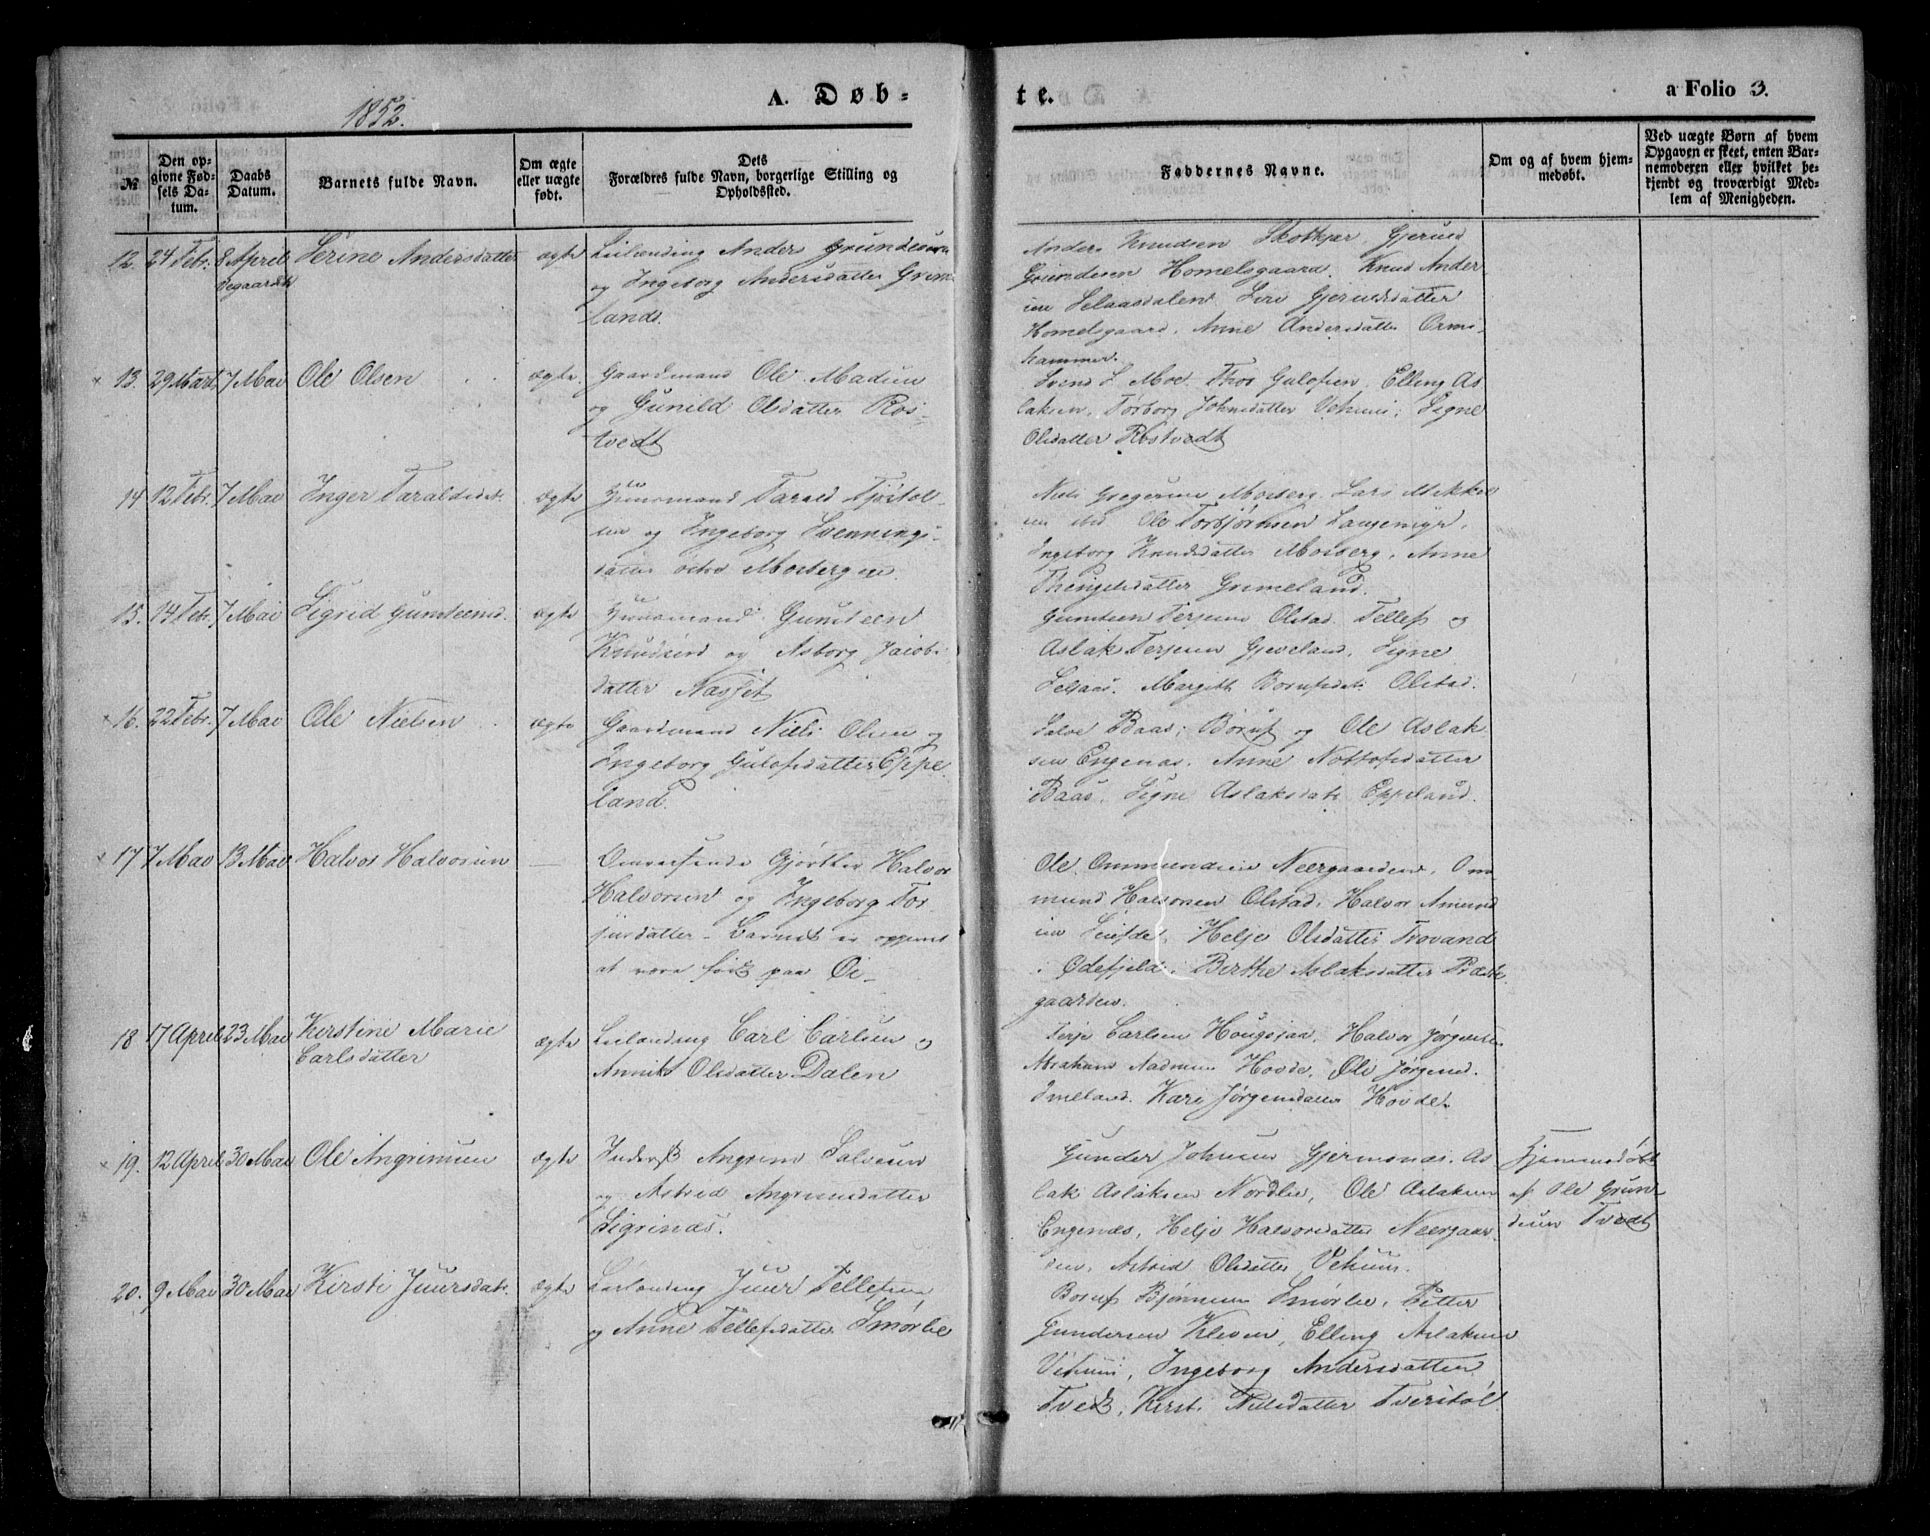 1852.
A. Døb-
te.
a Folio 3.
№
Den op-
givne Fød-
sels Da-
tum.
Daabs
Datum.
Barnets fulde Navn.
Om ægte
eller uægte
født.
Dets
Forældres fulde Navn, borgerlige Stilling og
Opholdssted.
Faddernes Navne.
Om og af hvem hjem-
medøbt.
Ved uægte Børn af hvem
Opgaven er skeet, enten Bar-
nemoderen eller hvilket be-
kjendt og troværdigt Med-
lem af Menigheden.
12. 24 Febr. 8 April Serine Andersdatter ægte Leilænding Anders Grundesen
og Ingeborg Andersdatter Grim-
lands.
Anders Knudsen Skotkjær, Gjerund
Grundesen Homelsgaard. Knud Ander-
sen Selaasdalen, Live Gjerundsdatter
Homelsgaard, Anne Andersdatter Orms-
hammer.
13. 29 Mart. 7 Mai Ole Olsen ægte. Gaardmand Ole Madsen
og Gunild Olsdatter Ros-
tvedt
Svend S. Moe. Thor Gulofsen, Elling As-
laksen, Torborg Johnsdatter Vehuus, Signe
Olsdatter Rostvedt
14 12 Febr. 7 Mai Inger Taraldsdat. ægte Huusmand Tarald Tjøstol-
sen og Ingeborg Svennings-
datter østre Mosbergeie.
Niels Gregersen Mosberg. Lars Mikkel-
sen ibd Ole Torbjørnsen Langemyr,
Ingeborg Knudsdatter Mosberg, Anne
Thengelsdatter Grimeland.
15. 14 Febr. 7 Mai Sigrid Gunsteensd. ægte Huusmand Gunsteen
Knudsen og Asborg Jacobs-
datter Næsset
Gunsteen Terjesen Olstad Tellef og
Aslak Terjesen Gjeveland, Signe
Selaas. Margith Borufsdat. Olstad.
16. 22 Febr. 7 Mai Ole Nielsen ægte Gaardmand Niels Olsen og
Ingeborg Gulofsdatter Eppe-
land.
Salve Baas, Boruf og Ole Aslak-
sen Engenæs. Anne Nottofsdatter
Baas, Signe Aslaksdat. Eppeland.
17 7 Mai 13 Mai Halvor Halvorsen — Omreisende Gjørtler Halvor
Halvorsen og Ingeborg Tor-
datter – Barnet er opgivet
at være født paa
Ole Ommundsen Neergaarden, Om-
mund Halvorsen Olstad, Halvor Amund-
sen Helje Olsdatter Trovand
i Odefjeld, Berthe Aslaksdatter Præste-
gaarden.
18 17 April 23 Mai Kirstine Marie
Carlsdatter ægte Leilænding Carl Carlsen og
Annik Olsdatter Dalen
Terje Carlsen Hougsjaa, Halvor Jørgensen
Abraham Hovde, Ole Jørgens.
Imeland. Kari Jørgensdatter Hovde.
19. 12 April 30 Mai Ole Angrimsen ægte Inderst Angrim Salvesen
og Astrid Angrimsdatter
Sigrinæs.
Gunder Johnsen Gjermonæs. As-
lak Aslaksen Nordlie, Ole Aslaksen
Engenæs, Helje Halvorsdatter Neergaar-
den, Astrid Olsdatter Vehuus.
Hjemmedøbt
af Ole Grun-
desen Tvedt
20. 9 Mai 30 Mai Kirsti Juursdat. ægte Leilænding Juur Tellefsen
og Anne Tellefsdatter Smørlie
Boruf Bjørnsen Smørlie, Petter
Gundersen Kleven, Elling Aslaksen
Vehuus, Ingeborg Andersdatter
Tvedt, Kirsti Nilsdatter Tverstøl